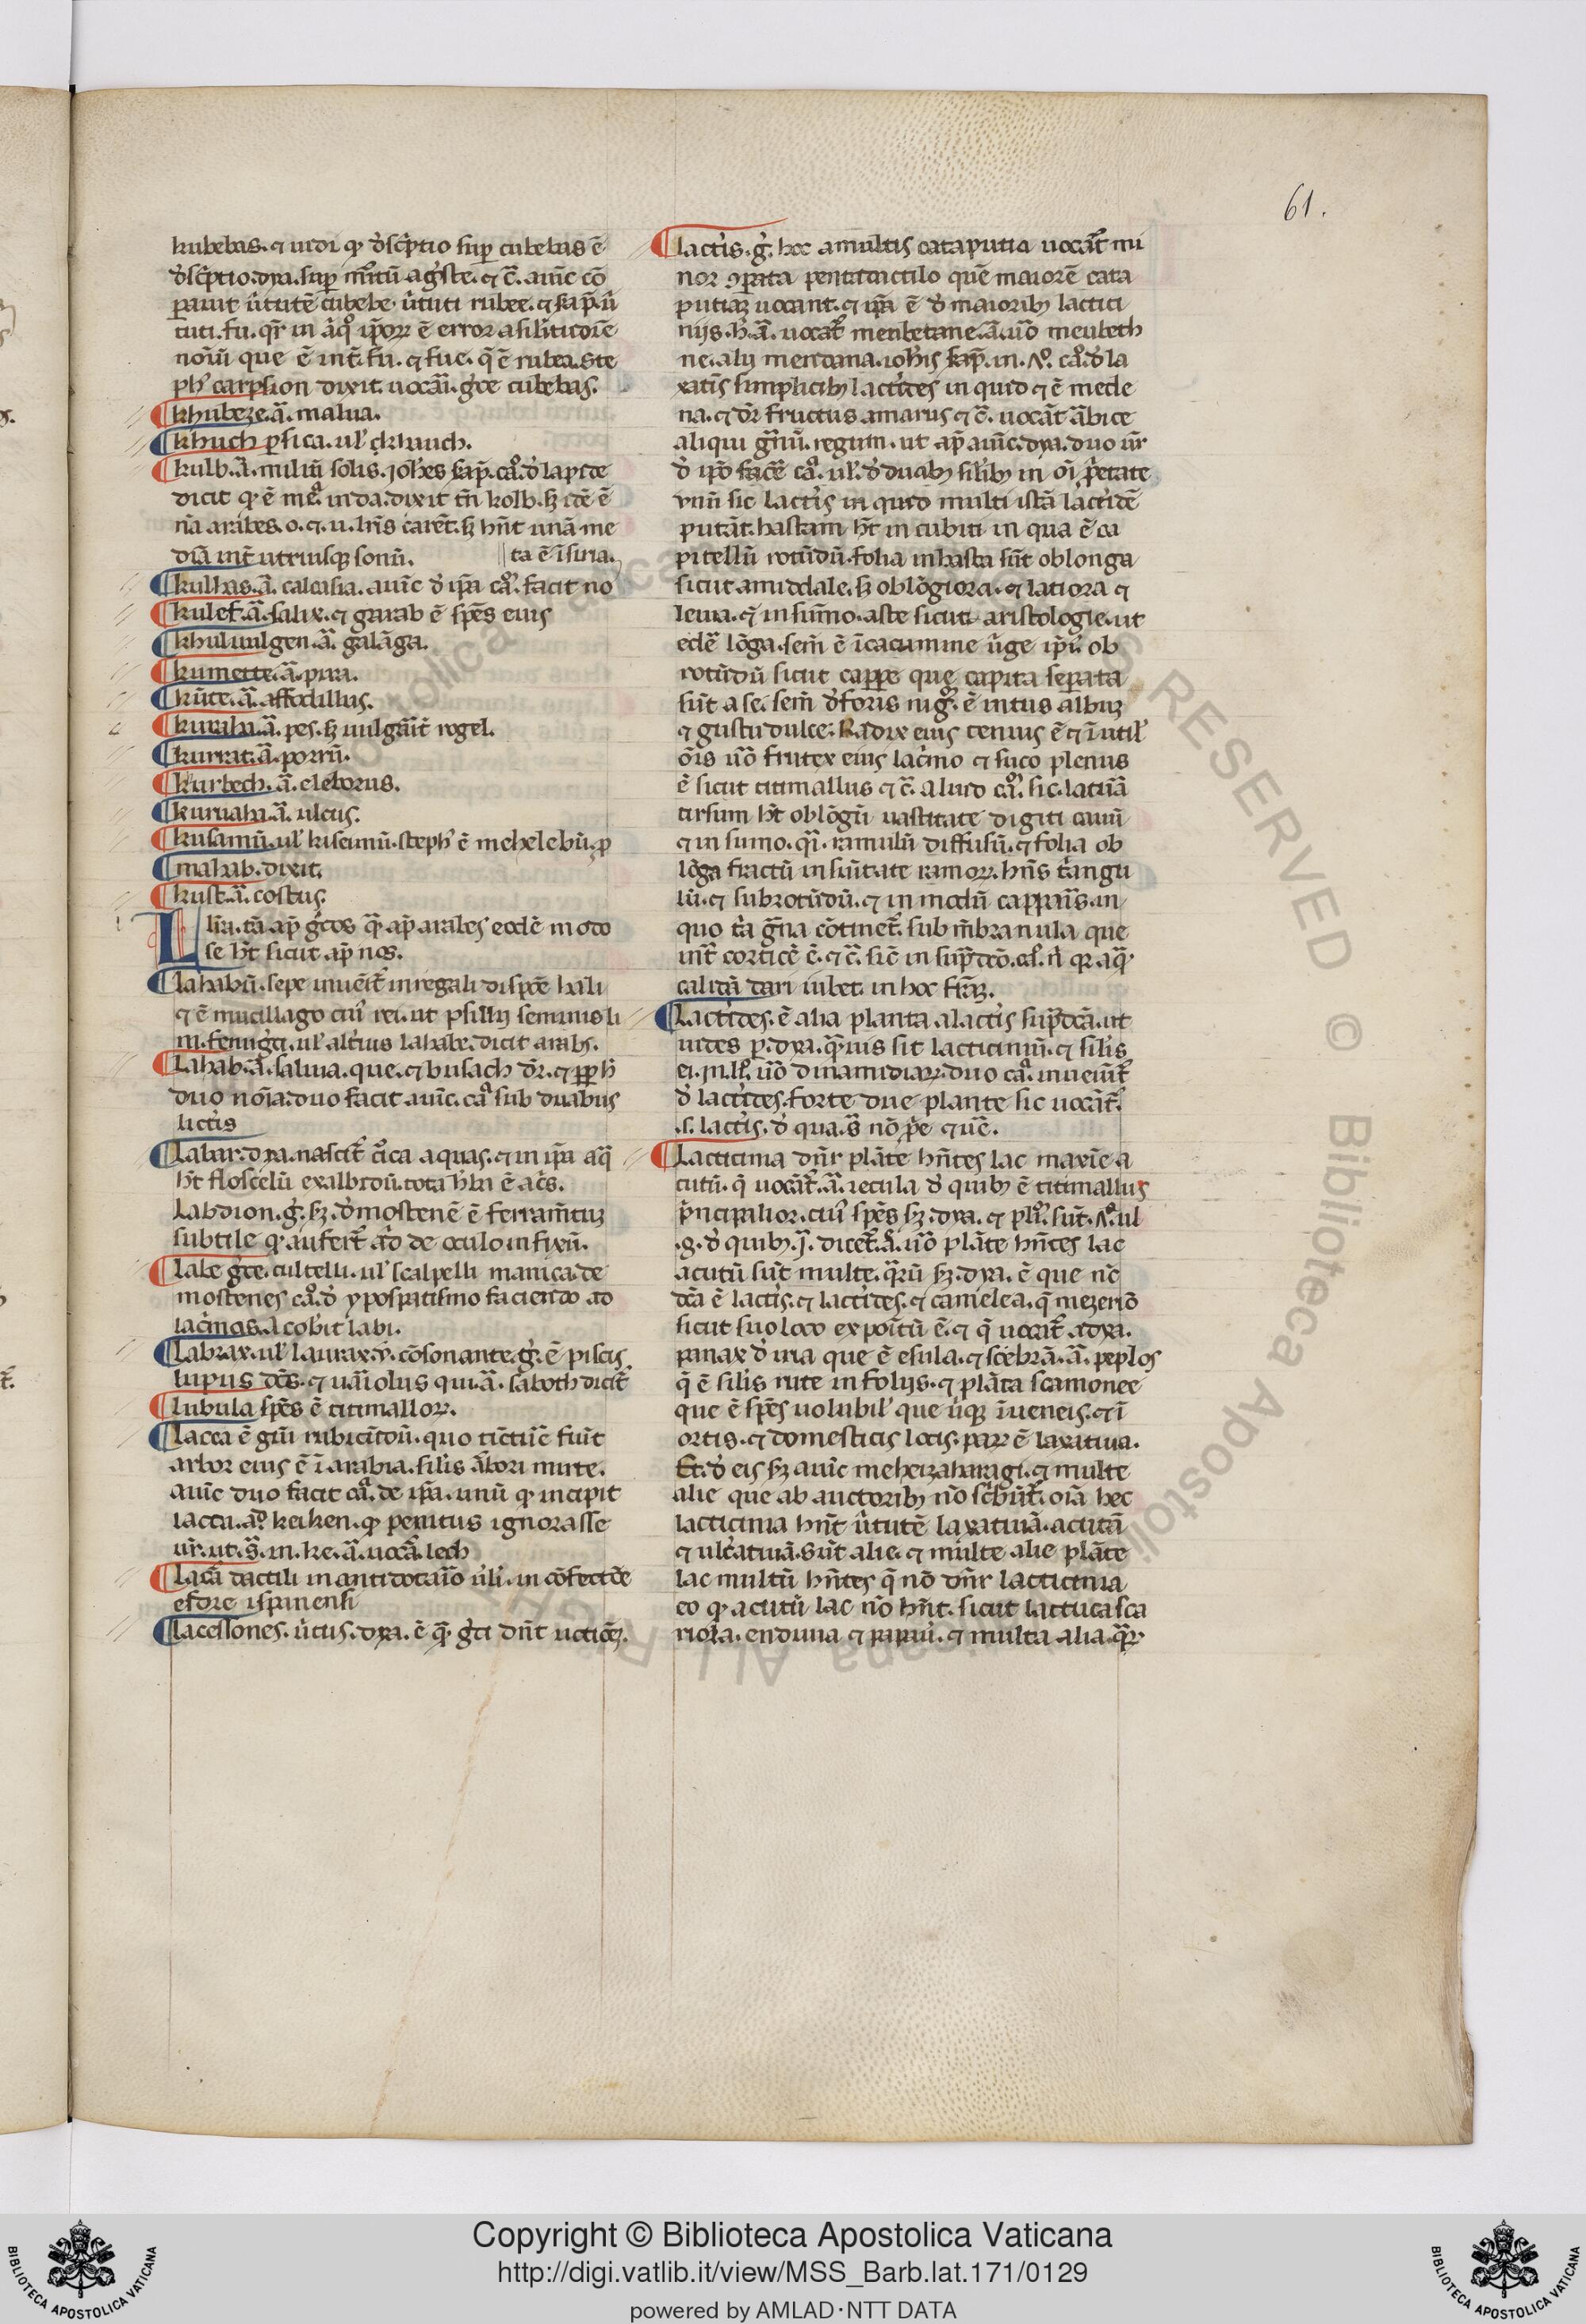 61.
kubebas. ⁊ uidi ꝙ d̾sc̾ptio sup cubebas ē
d̾sc̾ptio. dya. sup mirtū ag̾ste. ⁊ c̄. auic̄ cō
parauit ûtutē cubebe. ûtuti rubee. ⁊ sap̄. û
tuti. fu. qr̄ in
noīū que ē int̄ fu. ⁊ fue. q̄ ē rubea. ste
ph̾ carpsion dixit uocāī. g̾ce cubebas.
khubeze. ā. malua.
khuch psica. ul̾ chauch.
kulb. ā. miliū solis. joh̄es sap̄. ca͛. d̾ lapide
dicit ꝙ ē
nā arabes. o. ⁊ u. lr̄is carēt. hn̄t unā me
diā int̄ utriusq; sonū. ta ē ī siria.
kulhas. ā. calcasia. auic̄ d̾ ip̄a ca͛. facit no
kulef. ā. salix. ⁊ garab ē sp̄es eius
khuluulgen. ā. galāga.
kumette. ā. pira.
kūte. ā. affodillus.
kuraha. ā. pes. uulgārit̄ rogel.
kurrat. ā. porrū.
kurbech. ā. eleborus.
kuruahu. ā. ulcus.
kusamū. ul̾ kuseumū. steph̾ ē mehelebū. p
mahab. dixit.
kust. ā. costus.
L lr̄a. tā ap̄ g̾cos q̄ ap̄ arabes eodē modo
se h̄t sicut ap̄ nos.
lahabū. sepe inuēit̄ in regali dispōe hali
⁊ ē mucillago cui̾ rei. ut psillij seminis li
ni. fenug̾ci. ul̾ alt̾ius lahabe. dicit arabs.
Lahab. ā. saliua. que. ⁊ busach dr̄.
duo noīa. duo facit auic̄. ca͛ sub duabus
lict̾is
Labar. dya. nascit̄ c̾ca aquas. ⁊ in ip̄a aq̄
h̄t floscelū exalbidū. tota h̾ba ē ac̾s.
Labdion. g̾. d̾mostenē ē ferram̄tuz
subtile ꝙ aufert̄ ad de oculo infixū.
labe g̾ce. cultelli. ul̾ scalpelli manica. de
mostenes ca͛. d̾ ypospatismo faciendo ad
lac̾mas. Jacobit labi.
Labrax. ul̾ laurax. v̄. cōsonante. g̾. ē piscis.
lupus dc̄s. ⁊ uāiolus qui. ā. saboth dicit̄
lubula sp̄es ē titimallorꝝ.
lacca ē gūi rubicūdū. quo tīctiᵒē fūit
arbor eius ē ī arabia. sil̾is ār̄bori mirte.
auic̄ duo facit ca͛. de ip̄a. unū ꝙ incipit
laccu. keiken. ꝙ penitus ignorasse
ur̄. ut. s̄. in. ke. ā. uocā. lech
lacā dactili in antidotaīo ul̾i. in cōfectiōe
esdre ispanensi
lacessones. ûtus. dya. ē q̄. g̾ci dn̄t
lact̾is. g̾. hoc a multis cataputia uocāt̄ mi
nor ꝯparata pentadactilo quē maiorē cata
putiaꝝ uocant. ⁊ ip̄a ē d̾ maioribꝫ lactici
nijs. h̾. ā. uocāt̄ menbetane. ā. uō meubech
ne. alij mendana. ioh̄is sap̄. in. ca͛. d̾ la
xatis simplicibꝫ lact̾ides inquid ⁊ ē mede
na. ⁊ dr̄ fructus amarus ⁊ c̄. uocāt ārabice
aliqui grānū. regum. ut ap̄ auic̄. dya. duo ur̄
d̾ ipō facē ca͛. ul̾. d̾ duabꝫ sil̾ibꝫ in oī p̄etate
vnū sic lact̾is inquid multi istā lact̾idē
putāt. hastam h̄t in cubiti in qua ē ca
pitellū rotūdū. folia in hasta sūt oblonga
sicut amiddale. oblōgiora. ⁊ latiora ⁊
leuia. ⁊ in sūmo. aste sicuti aristologie. ut
edē̾ lōga. sem̄ ē ī cacumine uīge ip̄i. ob
rotūdū sicut cappe que capita separata
sūt a se. sem̄ d̾foris nig̾. ē intus albuꝫ
⁊ gustu dulce. Radix eius tenuis ē ⁊ īutil̾
oīs uō frutex eius lac̾mo ⁊ suco plenus
ē sicut titimallus ⁊ c̄. aluid ca͛. sic. latuā
tirsum h̄t oblōgū uastitate digiti cauū
⁊ in sūmo. q̄i. ramulū diffusū. ⁊ folia ob
lōga fractū in sūitate ramorꝝ. hn̄s t̾angu
lū. ⁊ subrotūdū. ⁊ in modū capparis. in
quo t̾a g̾na cōtinet̄. sub mēbranula que
int̄ corticē ē. ⁊ c̄. sic̄ in sup̄dc̄o.
calidā dari iubet. in hoc
Lact̾ides. ē alia planta a lact̾is sup̄dc̄ā. ut
uides p. dya. q̄uis sit lacticiniū. ⁊ sil̾is
ei. uō dinamidiarꝝ. duo ca͛. inueiūt̄
d̾ lact̾ides. forte due plante sic uocāt̄.
.s. lact̾is. d̾ qua. s̄ nō p̄e ⁊ uē.
Lacticinia dn̄r plāte hn̄tes lac maxīe a
cutū. q̄ uocāt̄. ā. iecula d̾ quibꝫ ē titimallus
p̾ncipalior. cui̾ sp̄es sꝫ. dya. ⁊ pli̾. sūt. ul
.g. d̾ quibꝫ. j̄. dicet̄. ā. uō plāte hn̄tes lac
acutū sūt multe. q̄rū sꝫ. dya. ē que nc̄
dc̄a ē lact̾is. ⁊ lact̾ides. ⁊ camelea. q̄ mezeriō
sicut suo loco expoītū ē. ⁊ q̄ uocat̄ adya.
panax d̾ uia que ē esula. ⁊ scēbrā. ā. peplos
q̄ ē sil̾is rute in folijs. ⁊ plāta scamonee
que ē sp̄es uolubil̾ que ûq; īueneis. ⁊ ī
ortis. ⁊ domesticis locis. parꝝ ē laxatiua.
Et. d̾ eis sꝫ auic̄ meheizaharagi. ⁊ multe
alie que ab auctoribꝫ nō sc̾būt̄. oīa hec
lacticinia hn̄t ûtutē laxatiuā. acutā
⁊ ulc̾atiuā. Sūt alie. ⁊ multe alie plāte
lac multū hn̄tes q̄ nō dn̄r lacticinia
eo ꝙ acutū lac nō hn̄t. sicut lactuca sca
riola. endiuia ⁊ papaū̾. ⁊ multa alia. q̄rꝝ
Copyright © Biblioteca Apostolica Vaticana
http://digi.vatlib.it/view/MSS_Barb.lat.171/0129
powered by AMLAD·NTT DATA
BIBLIOTECA APOSTOLICA VATICANA
BIBLIOTECA APOSTOLICA VATICANA